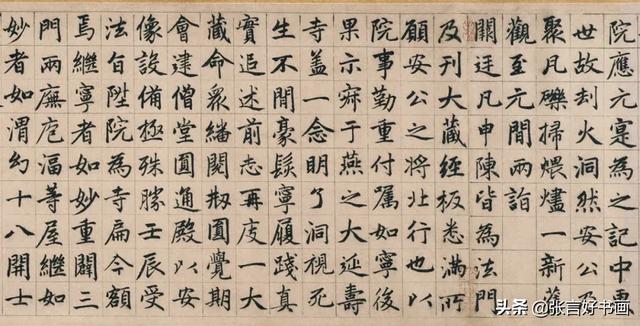 院應元寔為之記中更
世故刦火洞然安公乃
聚凡礫掃煨燼一新舊
觀至元間兩詣
闕廷凡申陳皆為法門
及刊大藏經板悉滿所
願安公之將北行也以
院事勤重付囑如寧後
果示寂于燕之大延壽
寺蓋一念明了洞視死
生不間豪髮寧履踐真
實追述前志再庋一大
藏命眾繙閱刱圓覺期
會建僧堂圓通殿以安
像設備極殊勝壬辰受
法旨陞院為寺扁今額
焉繼寧者如妙重闢三
門兩廡庖湢等屋繼如
妙者如渭幻十八開士
头条 @张言好书画